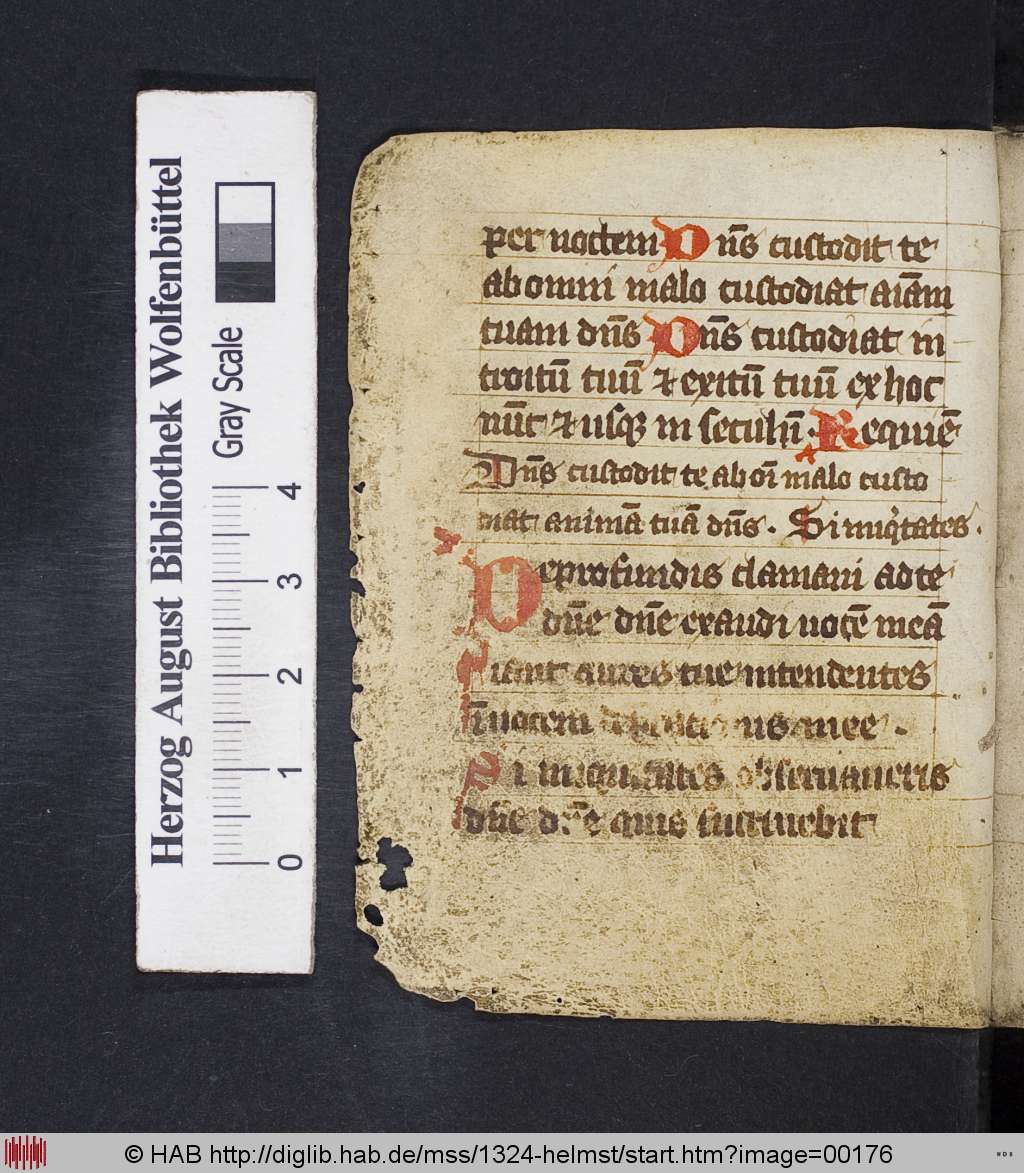 Herzog August Bibliothek Wolfenbüttel
Gray Scale
0 1 2 3 4
per noctem Dn̄s custodit te
ab omni malo custodiat aīam
tuam dn̄s Dn̄s custodiat in
troitū tuū ⁊ exitū tuū ex hoc
nūc ⁊ usq̨ in seculū. Requiē
Dn̄s custodit te ab oī malo custo
diat animā tuā dn̄s. Si iniq̇tates.
De profundis clamaui ad te
dn̄e dn̄e exaudi uocē meā
Fiant aures tue intendentes
ī uocem mee.
Si iniquitates obseruaueris
dn̄e dn̄e quis sustinebit
© HAB http://diglib.hab.de/mss/1324-helmst/start.htm?image=00176